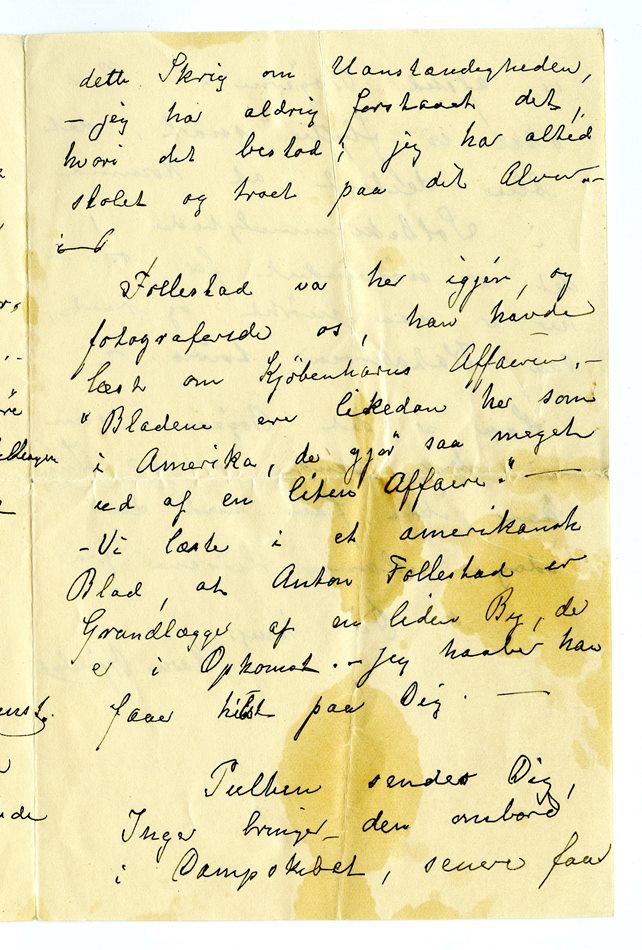 dette Skrig om Uanstændigheden,
– jeg har aldrig forstaaet det,
hvori det bestod; jeg har altid
stolet og troet paa dit Alvor. –
Follestad var her igjen, og
fotograferede os, han havde
læst om Kjöbenhavns Affæren. –
"Bladene ere likedan her som
i Amerika, de gjör saa meget
ud af en liten Affære." –
– Vi læste i et amerikansk
Blad, at Anton Follestad er
Grundlægger af en liden By, der
er i Opkomst. – Jeg haaber han
faar hilst paa Dig. –
sendes Dig,
Inger bringer den ombord
i Dampskibet, senere faar